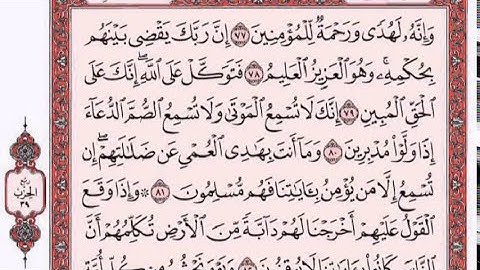 وَإِنَّهُۥ لَهُدًى وَرَحْمَةٌ لِّلْمُؤْمِنِينَ ٧٧ إِنَّ رَبَّكَ يَقْضِى بَيْنَهُم
بِحُكْمِهِۦ ۚ وَهُوَ ٱلْعَزِيزُ ٱلْعَلِيمُ ٧٨ فَتَوَكَّلْ عَلَى ٱللَّهِ ۖ إِنَّكَ عَلَى
ٱلْحَقِّ ٱلْمُبِينِ ٧٩ إِنَّكَ لَا تُسْمِعُ ٱلْمَوْتَىٰ وَلَا تُسْمِعُ ٱلصُّمَّ ٱلدُّعَآءَ
إِذَا وَلَّوْا۟ مُدْبِرِينَ ٨٠ وَمَآ أَنتَ بِهَـٰدِى ٱلْعُمْىِ عَن ضَلَـٰلَتِهِمْ ۖ إِن
تُسْمِعُ إِلَّا مَن يُؤْمِنُ بِـَٔايَـٰتِنَا فَهُم مُّسْلِمُونَ ٨١ ۞ وَإِذَا وَقَعَ
ٱلْقَوْلُ عَلَيْهِمْ أَخْرَجْنَا لَهُمْ دَآبَّةً مِّنَ ٱلْأَرْضِ تُكَلِّمُهُمْ أَنَّ
ٱلنَّاسَ كَانُوا۟ بِـَٔايَـٰتِنَا لَا يُوقِنُونَ ٨٢ وَيَوْمَ نَحْشُرُ مِن كُلِّ أُمَّةٍ
الحزب
٣٩